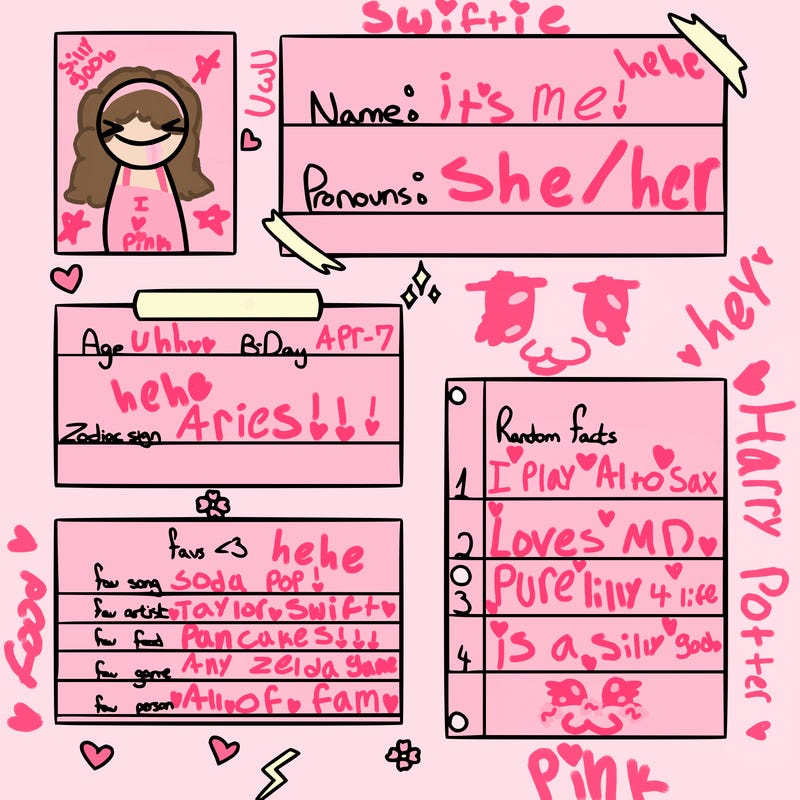 Swiftie
Silly
goob
UwU
hehe
Name: it's me!
Pronouns: She/her
I
Pink
Age uhh B-Day APr-7
hehe
Zodiac sign Aries!!!
hey
Random facts
1 I Play Alto Sax
2 Loves MD
3 Pure lilly 4 life
4 is a Silly goob
Harry Potter
favs <3 hehe
fav song Soda POP!
fav artist Taylor Swift
fav food Pancakes!!!
fav game Any Zelda game
fav person All OF fam
Pink